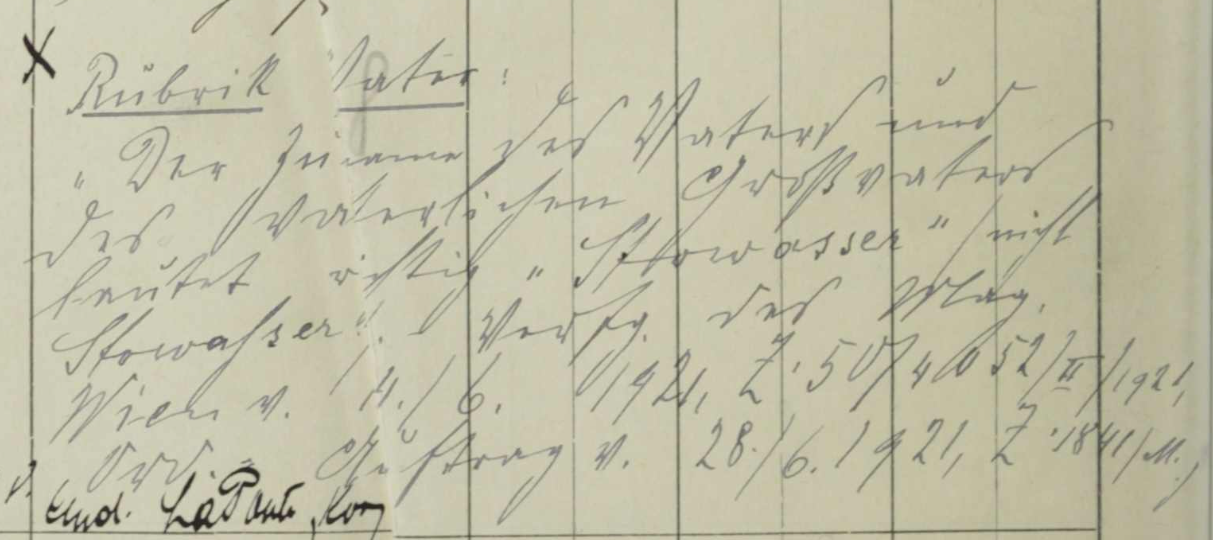 X Rubrik Vater:
"Der Zuname des Vaters und
des väterlichen Großvaters
lautet richtig "Stowasser" nicht
Stowaßer". Verfg. des Mag.
Wien v. 4./6. 1921, Z. 50/4052/II/1921,
Ord. Auftrag v. 28./6. 1921, Z. 1841/M.,